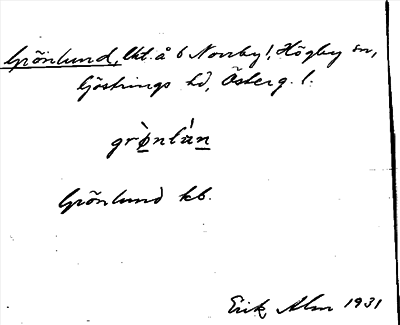 Grönlund, lht. å 6 Norrby!, Högby sn,
Göstrings hd, Österg. l.
grònlán
Grönlund kb.
Erik Alm 1931